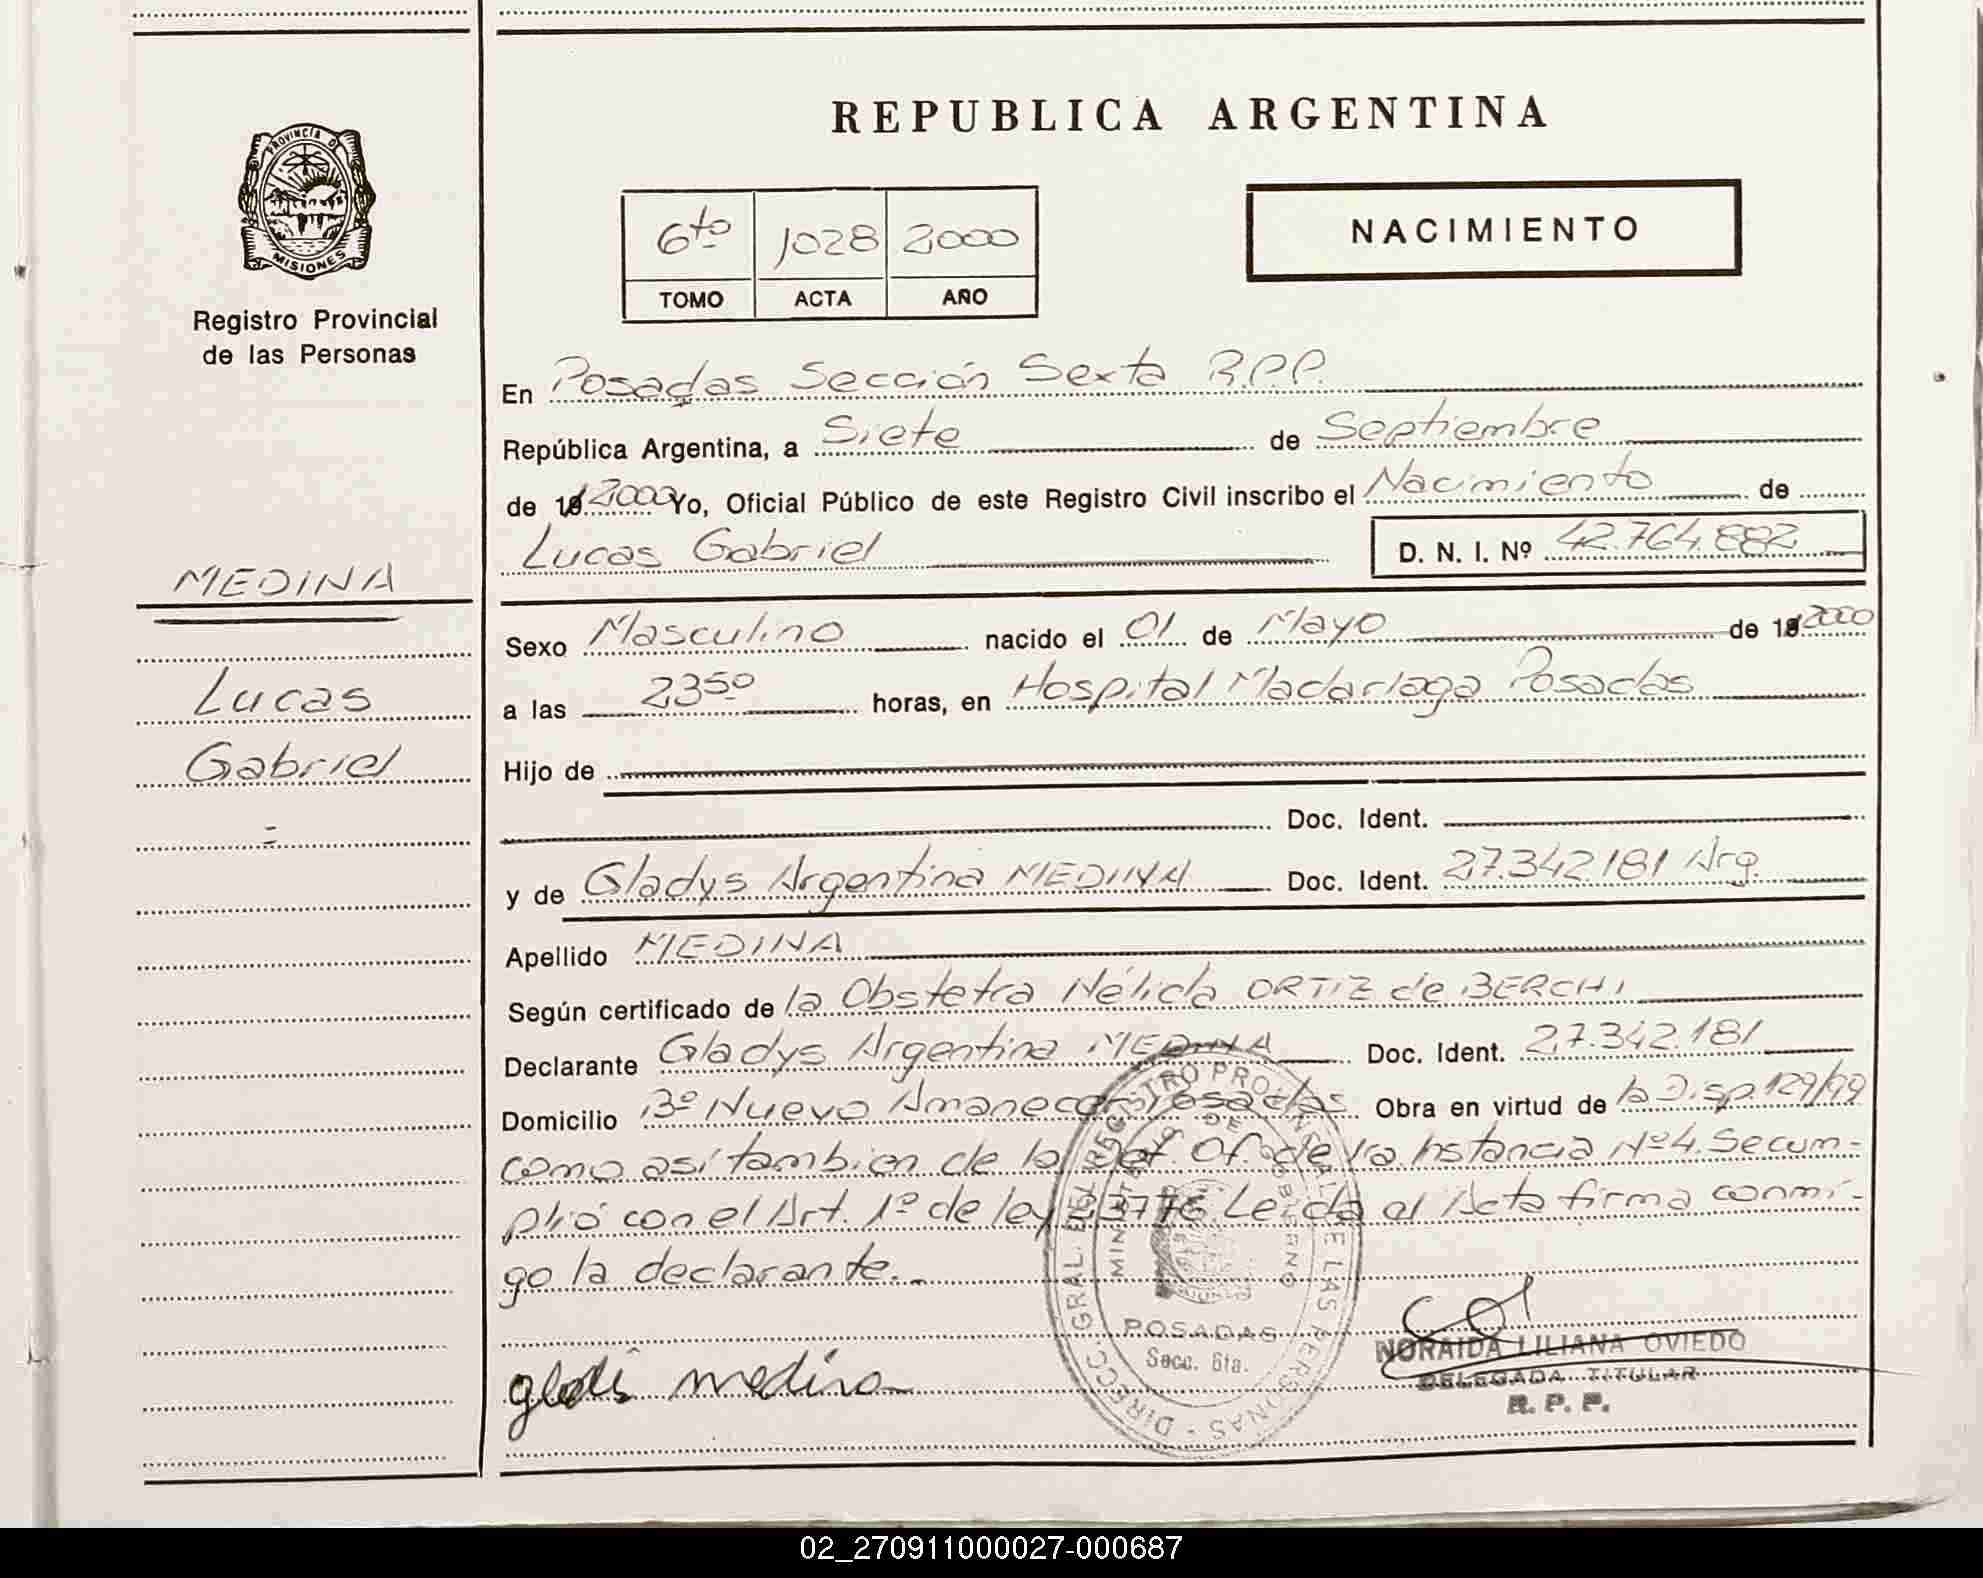 REPUBLICA ARGENTINA
PROVINCIA D
MISIONES
Registro Provincial
de las Personas
6to 1028 2000
TOMO ACTA AÑO
NACIMIENTO
En Posadas Sección Sexta R.P.P.
República Argentina, a Siete de Septiembre
de 19 2000 Yo, Oficial Público de este Registro Civil inscribo el Nacimiento de
Lucas Gabriel D. N. I. Nº 42.764.882
MEDINA
Lucas
Gabriel
Sexo Masculino nacido el 01 de Mayo de 19 2000
a las 23⁵⁰ horas, en Hospital Madariaga Posadas
Hijo de
Doc. Ident.
y de Gladys Argentina MEDINA Doc. Ident. 27.342.181 Arg.
Apellido MEDINA
Según certificado de la Obstetra Nélida ORTIZ de BERCHI
Declarante Gladys Argentina MEDINA Doc. Ident. 27.342.181
Domicilio Bº Nuevo Amanecer Posadas Obra en virtud de la Disp. 129/99
como asi tambien de la Def. Of. de 1a Instancia Nº4. Se cum-
plió con el Art. 1º de ley 23776 Leída el Acta firma conmi-
go la declarante.-
DIRECC. GRAL. DEL REGISTRO PROVINCIAL DE LAS PERSONAS
MINISTERIO DE GOBIERNO
POSADAS
Secc. 6ta.
medina
NORAIDA LILIANA OVIEDO
DELEGADA TITULAR
R. P. P.
02_270911000027-000687